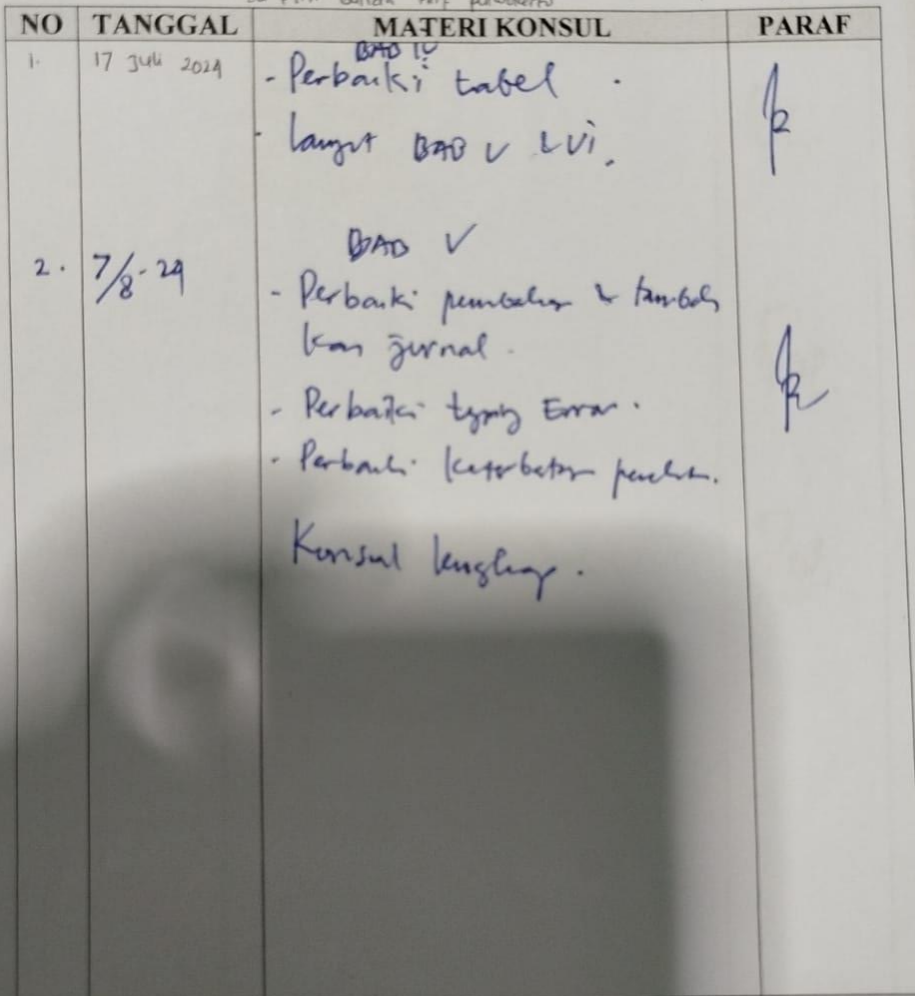 NO TANGGAL MATERI KONSUL PARAF
BAB IV
1. 17 Juli 2024 - Perbaiki tabel
- Lanjut BAB V & VI.
BAB V
2. 7/8-24
- Perbaiki pembahasan & tambah
kan jurnal.
- Perbaiki typing Error.
- Perbaiki keterbatasan
Konsul lengkap.